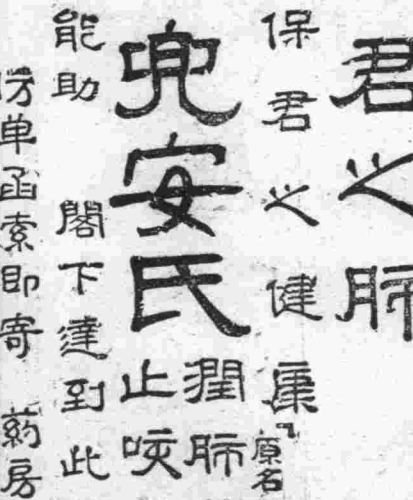 君之肺
保君之健康
「原名
兜安氏
潤肺
止咳
能助 閣下達到此
仿单函索即寄 药房